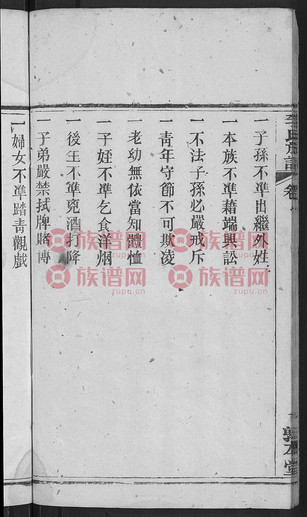 李氏族譜 卷
一子孫不準出繼外姓
一本族不準藉端興訟
一不法子孫必嚴戒斥
一青年守節不可欺凌
一老幼無依當知體恤
一子姪不準乞食洋烟
一後生不準兇酒打降
一子弟嚴禁拭牌賭博
一婦女不準踏青觀戲
敦本堂
族谱网
zupu.cn